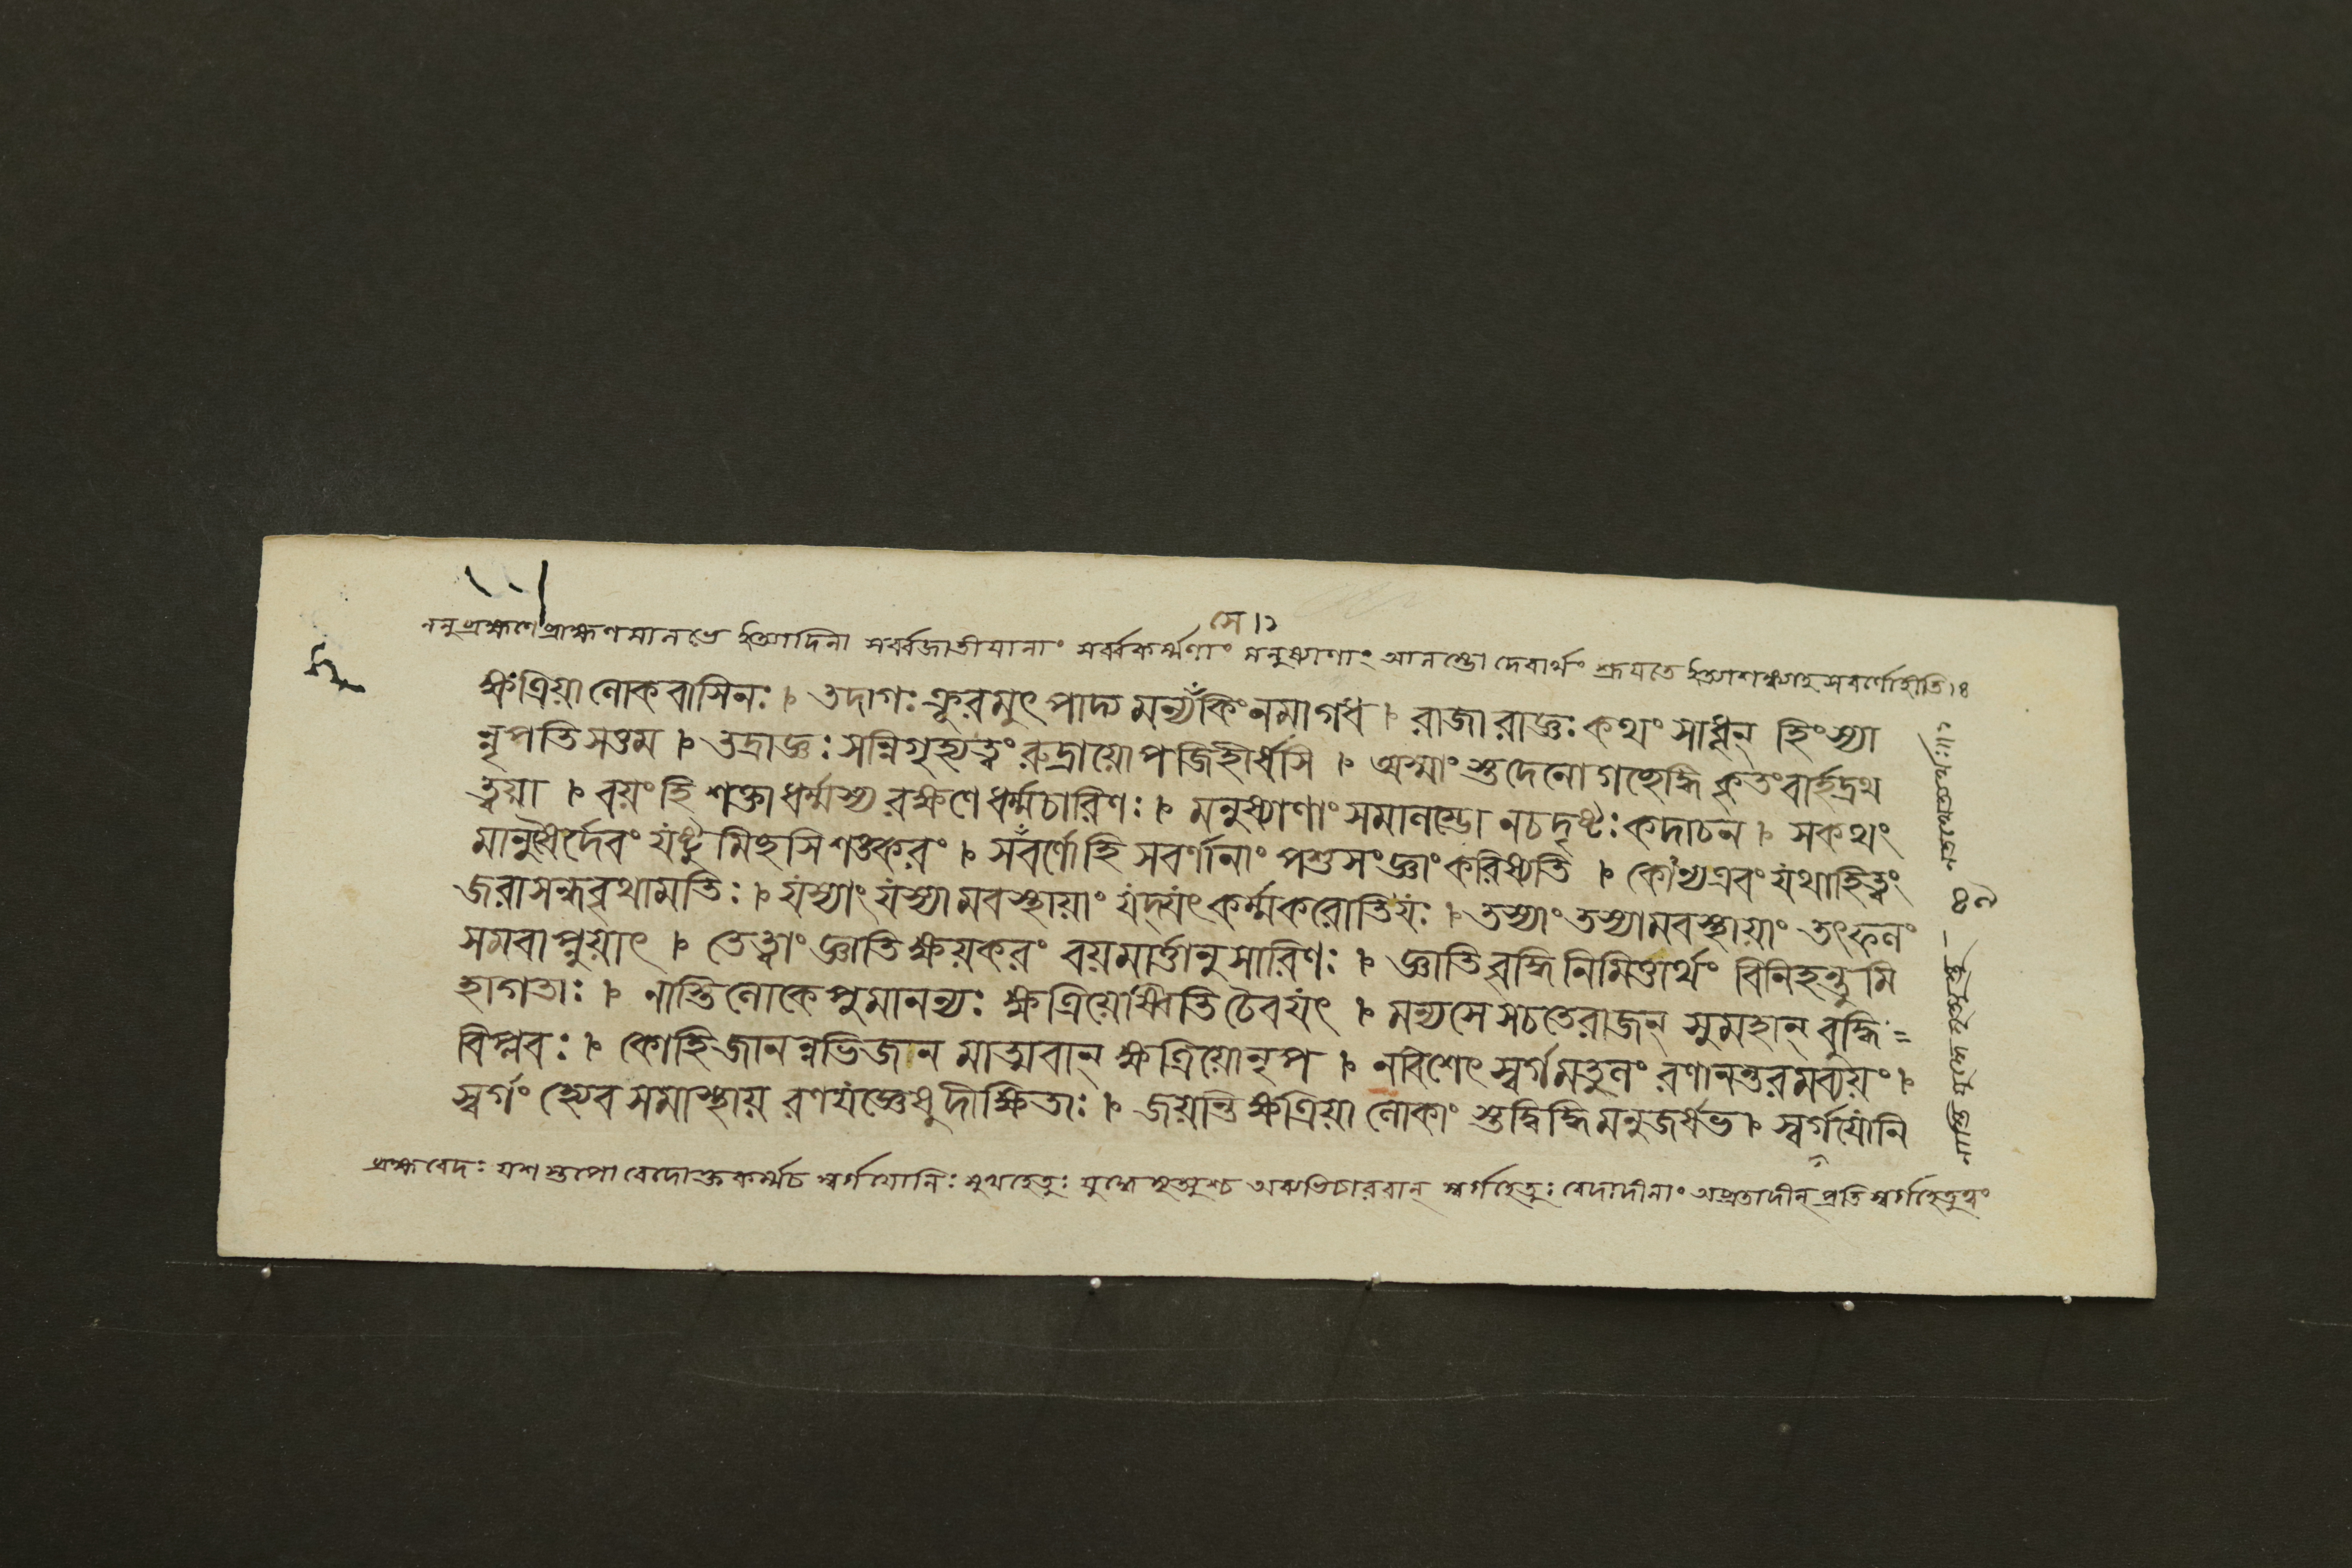 সে ৷১
ননু ব্রহ্মণে ব্রাহ্মণমালভে ইত্যাদিনা সর্ব্বজাতীয়ানাং সর্ব্বকর্ম্মণাং মনুষ্যাণাং আলম্ভো দেবার্থং শ্রূয়তে ইত্যাশঙ্ক্যাহ সবর্ণোহীতি ৷৪
ক্ষত্রিয়া লোকবাসিনঃ ৷ তদাগঃ ক্রূরমুৎপাদ্য মন্যসে কিং নমাগধ ৷ রাজা রাজ্ঞঃ কথং সাধূন্ হিংস্যা
ন্নৃপতিসত্তম ৷ তদ্রাজ্ঞঃ সন্নিগৃহ্য ত্বং রুদ্রায়োপজিহীর্ষসি ৷ অস্মাংস্তদেনো গচ্ছেদ্ধি কৃতং বার্হদ্রথ
ত্বয়া ৷ বয়ং হি শক্তা ধর্ম্মস্য রক্ষণে ধর্ম্মচারিণঃ ৷ মনুষ্যাণাং সমালম্ভো নচ দৃষ্টঃ কদাচন ৷ সকথং
মানুষৈর্দেবং যষ্টুমিচ্ছসি শঙ্করং ৷ সবর্ণোহি সবর্ণানাং পশুসংজ্ঞাং করিষ্যতি ৷ কোন্য এবং যথাহি ত্বং
জরাসন্ধ বৃথামতিঃ ৷ যস্যাং যস্যামবস্থায়াং যদ্যৎ কর্ম্ম করোতি যঃ ৷ তস্যাং তস্যামবস্থায়াং তৎফলং
সমবাপ্নুয়াৎ ৷ তে ত্বাং জ্ঞাতিক্ষয়করং বয়মার্ত্তানুসারিণঃ ৷ জ্ঞাতিবৃদ্ধিনিমিত্তার্থং বিনিহন্তুমি
হাগতাঃ ৷ নাস্তি লোকে পুমানন্যঃ ক্ষত্রিয়েষ্বিতি চৈব যৎ ৷ মন্যসে সচ তে রাজন্ সুমহান্ বুদ্ধি
বিপ্লবঃ ৷ কোহি জানন্নভিজনমাত্মবান্ ক্ষত্রিয়ো নৃপ ৷ নাবিশেৎ স্বর্গমতুলং রণানন্তরমব্যয়ং ৷
স্বর্গং হ্যেব সমাস্থায় রণযজ্ঞেষু দীক্ষিতাঃ ৷ জয়ন্তি ক্ষত্রিয়া লোকাংস্তদ্বিদ্ধি মনুজর্ষভ ৷ স্বর্গযোনি
ব্রহ্ম বেদঃ যশস্তপো বেদোক্তকর্ম্মচ স্বর্গযোনিঃ সুখহেতুঃ যুদ্ধে মৃত্যুশ্চ অব্যভিচারবান্ স্বর্গহেতুঃ বেদাদীনাং অব্রতাদীন্ প্রতি স্বর্গহেতুত্বং